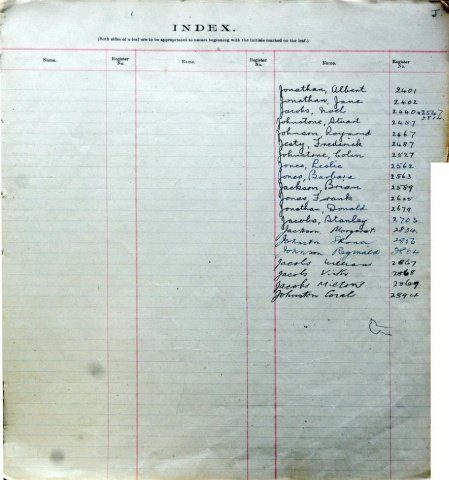 J.
INDEX.
(Both sides of a leaf are to be appropriated to names beginning with the initials marked on the leaf.)
Name. Register No. Name. Register No. Name. Register No.
Jonathan, Albert 2401
Jonathan, Jane 2402
Jacobs, Noel 2440
Johnstone, Stuart 2457
Johnson Raymond 2467
Jesty, Frederick 2487
Johnstone, Colin 2527
Jones, Leslie 2562
Jones, Barbara 2563
Jackson, Brian 2589
Jones, Frank 2625
Jonathan, Donald 2679
Jacobs, Stanley 2703
Jackson Margaret 2834
Johnston
Johnson Reginald
Jacobs William 2867
Jacobs Victor 2868
Jacobs Milton 2869
Johnston Coral 2894